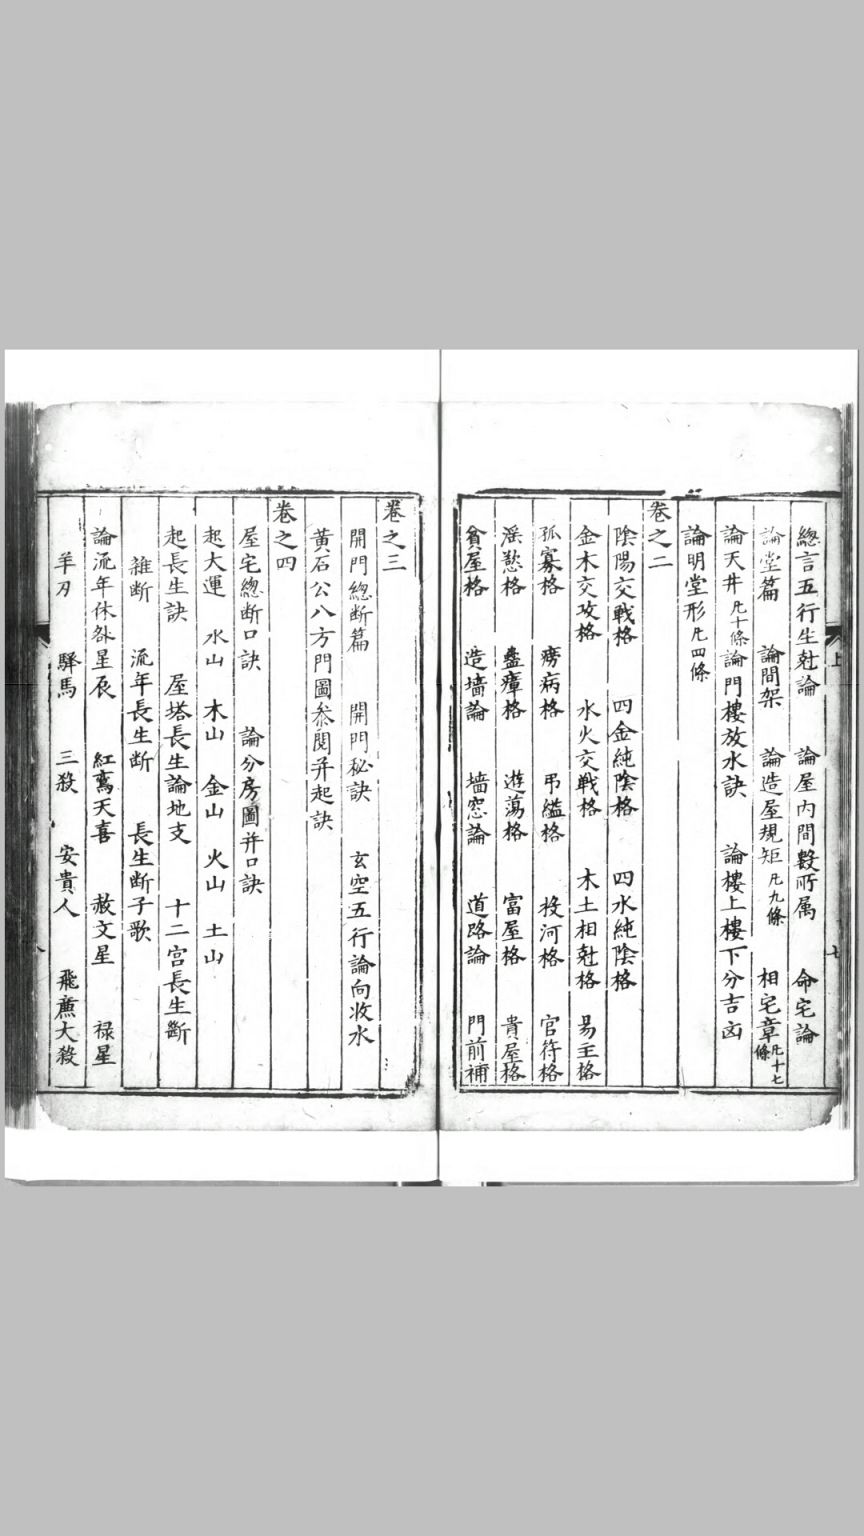 總言五行生尅論 論屋内間數所属 命宅論
論堂篇 論間架 論造屋規矩凡九條 相宅章凡十七條
論天井凡十條 論門樓放水訣 論樓上樓下分吉凶
論明堂形凡四條
卷之二
陰陽交戰格 四金純陰格 四水純陰格
金木交攻格 水火交戰格 木土相尅格 易主格
孤寡格 癆病格 弔縊格 投河格 官符格
滛慾格 蠱瘴格 遊蕩格 富屋格 貴屋格
貧屋格 造墻論 墻窓論 道路論 門前補
卷之三
開門總断篇 開門秘訣 玄空五行論向收水
黃石公八方門圖叅閱并起訣
卷之四
屋宅總断口訣 論分房圖并口訣
起大運 水山 木山 金山 火山 土山
起長生訣 屋塔長生論地支 十二宫長生斷
雜断 流年長生断 長生断子歌
論流年休咎星辰 紅鸞天喜 赦文星 禄星
羊刃 驛馬 三殺 安貴人 飛廉大殺
上
七
八